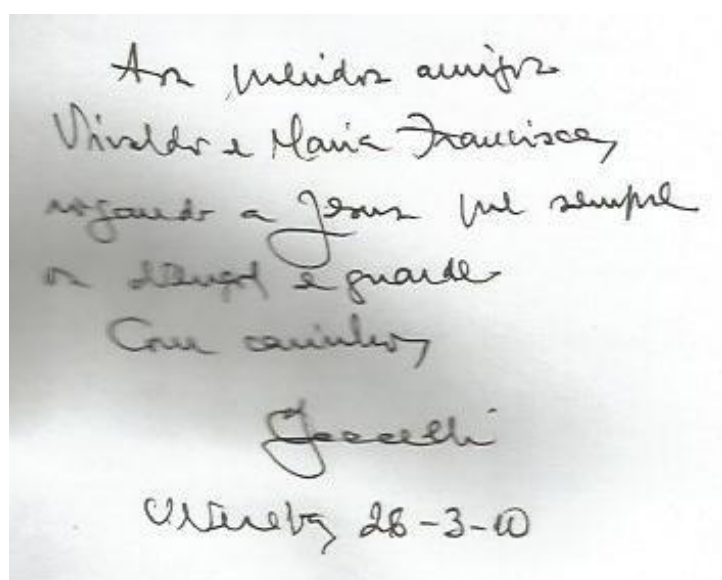 Aos queridos amigos
Vivaldo e Maria Francisca,
rogando a Jesus que sempre
os abençoe e guarde
Com carinho,
28-3-10